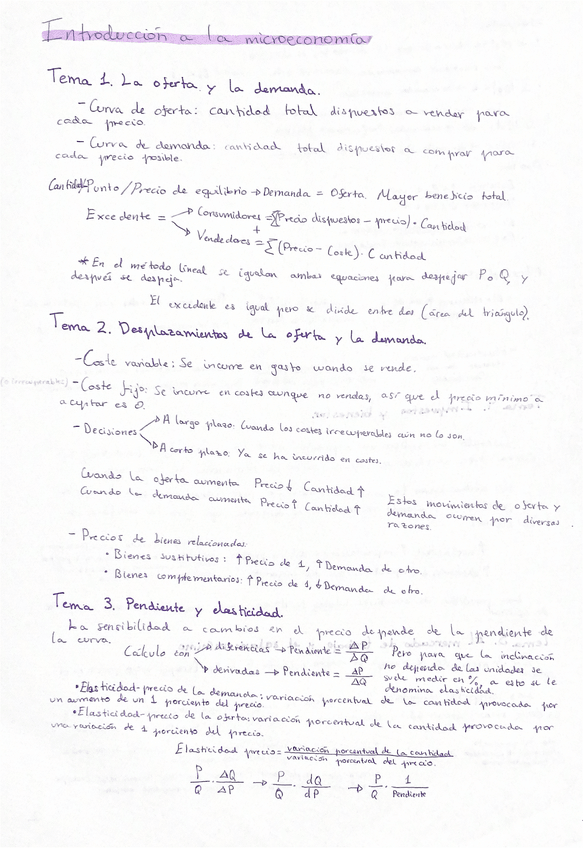 Introducción a la microeconomía
Tema 1. La oferta y la demanda.
- Curva de oferta: cantidad total dispuestos a vender para
cada precio.
- Curva de demanda: cantidad total dispuestos a comprar para
cada precio posible.
Cantidad/Punto/Precio de equilibrio → Demanda = Oferta. Mayor beneficio total.
Excedente = → Consumidores = Σ(Precio dispuestos - precio) · Cantidad
+
→ Vendedores = Σ(Precio - Coste) · Cantidad
* En el método lineal se igualan ambas ecuaciones para despejar P o Q, y
después se despeja.
El excedente es igual pero se divide entre dos (área del triángulo).
Tema 2. Desplazamientos de la oferta y la demanda.
- Coste variable: Se incurre en gasto cuando se vende.
(o irrecuperables) - Coste fijo: Se incurre en costes aunque no vendas, así que el precio mínimo a
aceptar es 0.
- Decisiones → A largo plazo: Cuando los costes irrecuperables aún no lo son.
→ A corto plazo: Ya se ha incurrido en costes.
Cuando la oferta aumenta Precio ↓ Cantidad ↑
Cuando la demanda aumenta Precio ↑ Cantidad ↑
Estos movimientos de oferta y
demanda ocurren por diversas
razones.
- Precios de bienes relacionados:
• Bienes sustitutivos: ↑ Precio de 1, ↑ Demanda de otro.
• Bienes complementarios: ↑ Precio de 1, ↓ Demanda de otro.
Tema 3. Pendiente y elasticidad.
La sensibilidad a cambios en el precio depende de la pendiente de
la curva.
Cálculo con → diferencias → Pendiente = ΔP/ΔQ
→ derivadas → Pendiente = dP/dQ
Pero para que la inclinación
no dependa de las unidades se
suele medir en %, a esto se le
denomina elasticidad.
• Elasticidad-precio de la demanda: variación porcentual de la cantidad provocada por
un aumento de un 1 porciento del precio.
• Elasticidad-precio de la oferta: variación porcentual de la cantidad provocada por
una variación de 1 porciento del precio.
Elasticidad precio = variación porcentual de la cantidad / variación porcentual del precio.
P/Q · ΔQ/ΔP → P/Q · dQ/dP → P/Q · 1/Pendiente